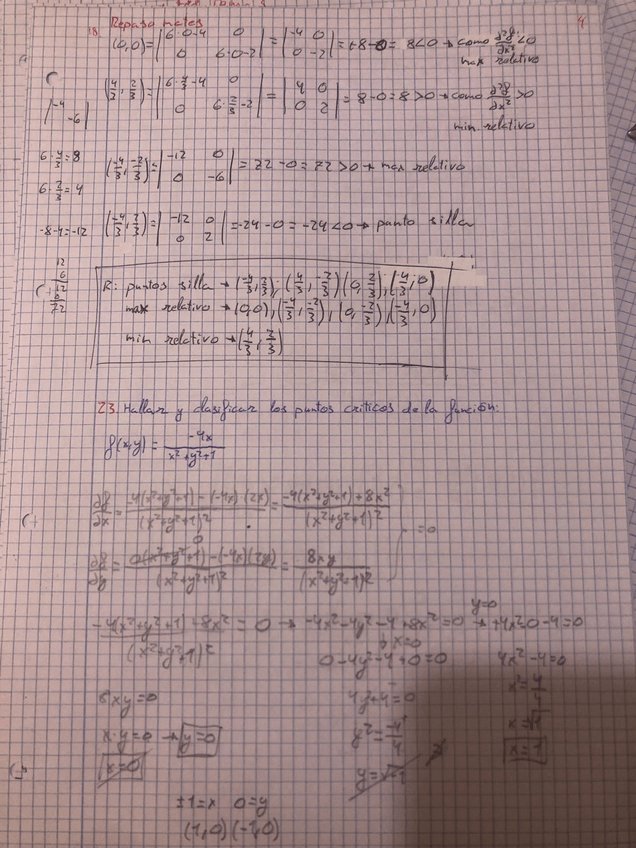 Repaso mates
4
18
(0,0) = |6·0-4 0; 0 6·0-2| = |-4 0; 0 -2| = +8-0 = 8<0 → como ∂²f/∂x² <0
max relativo
(4/3, 2/3) = |6·4/3-4 0; 0 6·2/3-2| = |4 0; 0 2| = 8-0=8>0 → como ∂²f/∂x² >0
min. relativo
|-4
-6|
6·4/3=8
6·2/3=4
(-4/3, -2/3) = |-12 0; 0 -6| = 72-0=72>0 → max relativo
-8-4=-12
(-4/3, 2/3) = |-12 0; 0 2| = -24-0=-24<0 → punto silla
12
6
12
6
72
R: puntos silla → (-4/3, 2/3); (4/3, -2/3) (0, 2/3); (4/3; 0)
max relativo → (0,0), (-4/3, -2/3), (0, -2/3), (-4/3, 0)
min relativo → (4/3, 2/3)
23. Hallar y clasificar los puntos críticos de la función:
f(x,y) = -4x / x²+y²+1
∂f/∂x = -4(x²+y²+1)-(-4x)·(2x) / (x²+y²+1)² = -4(x²+y²+1)+8x² / (x²+y²+1)²
=0
∂f/∂y = 0(x²+y²+1)-(-4x)(2y) / (x²+y²+1)² = 8xy / (x²+y²+1)²
-4(x²+y²+1)+8x² / (x²+y²+1)² = 0 → -4x²-4y²-4+8x²=0 → y=0 +4x²-0-4=0
x=0
0-4y²-4+0=0
4x²-4=0
8xy=0
4y²+4=0
x²=4/4
x·y=0 → y=0
y²=-4/4
x=0
x=1
±1=x 0=y
(1,0) (-1,0)